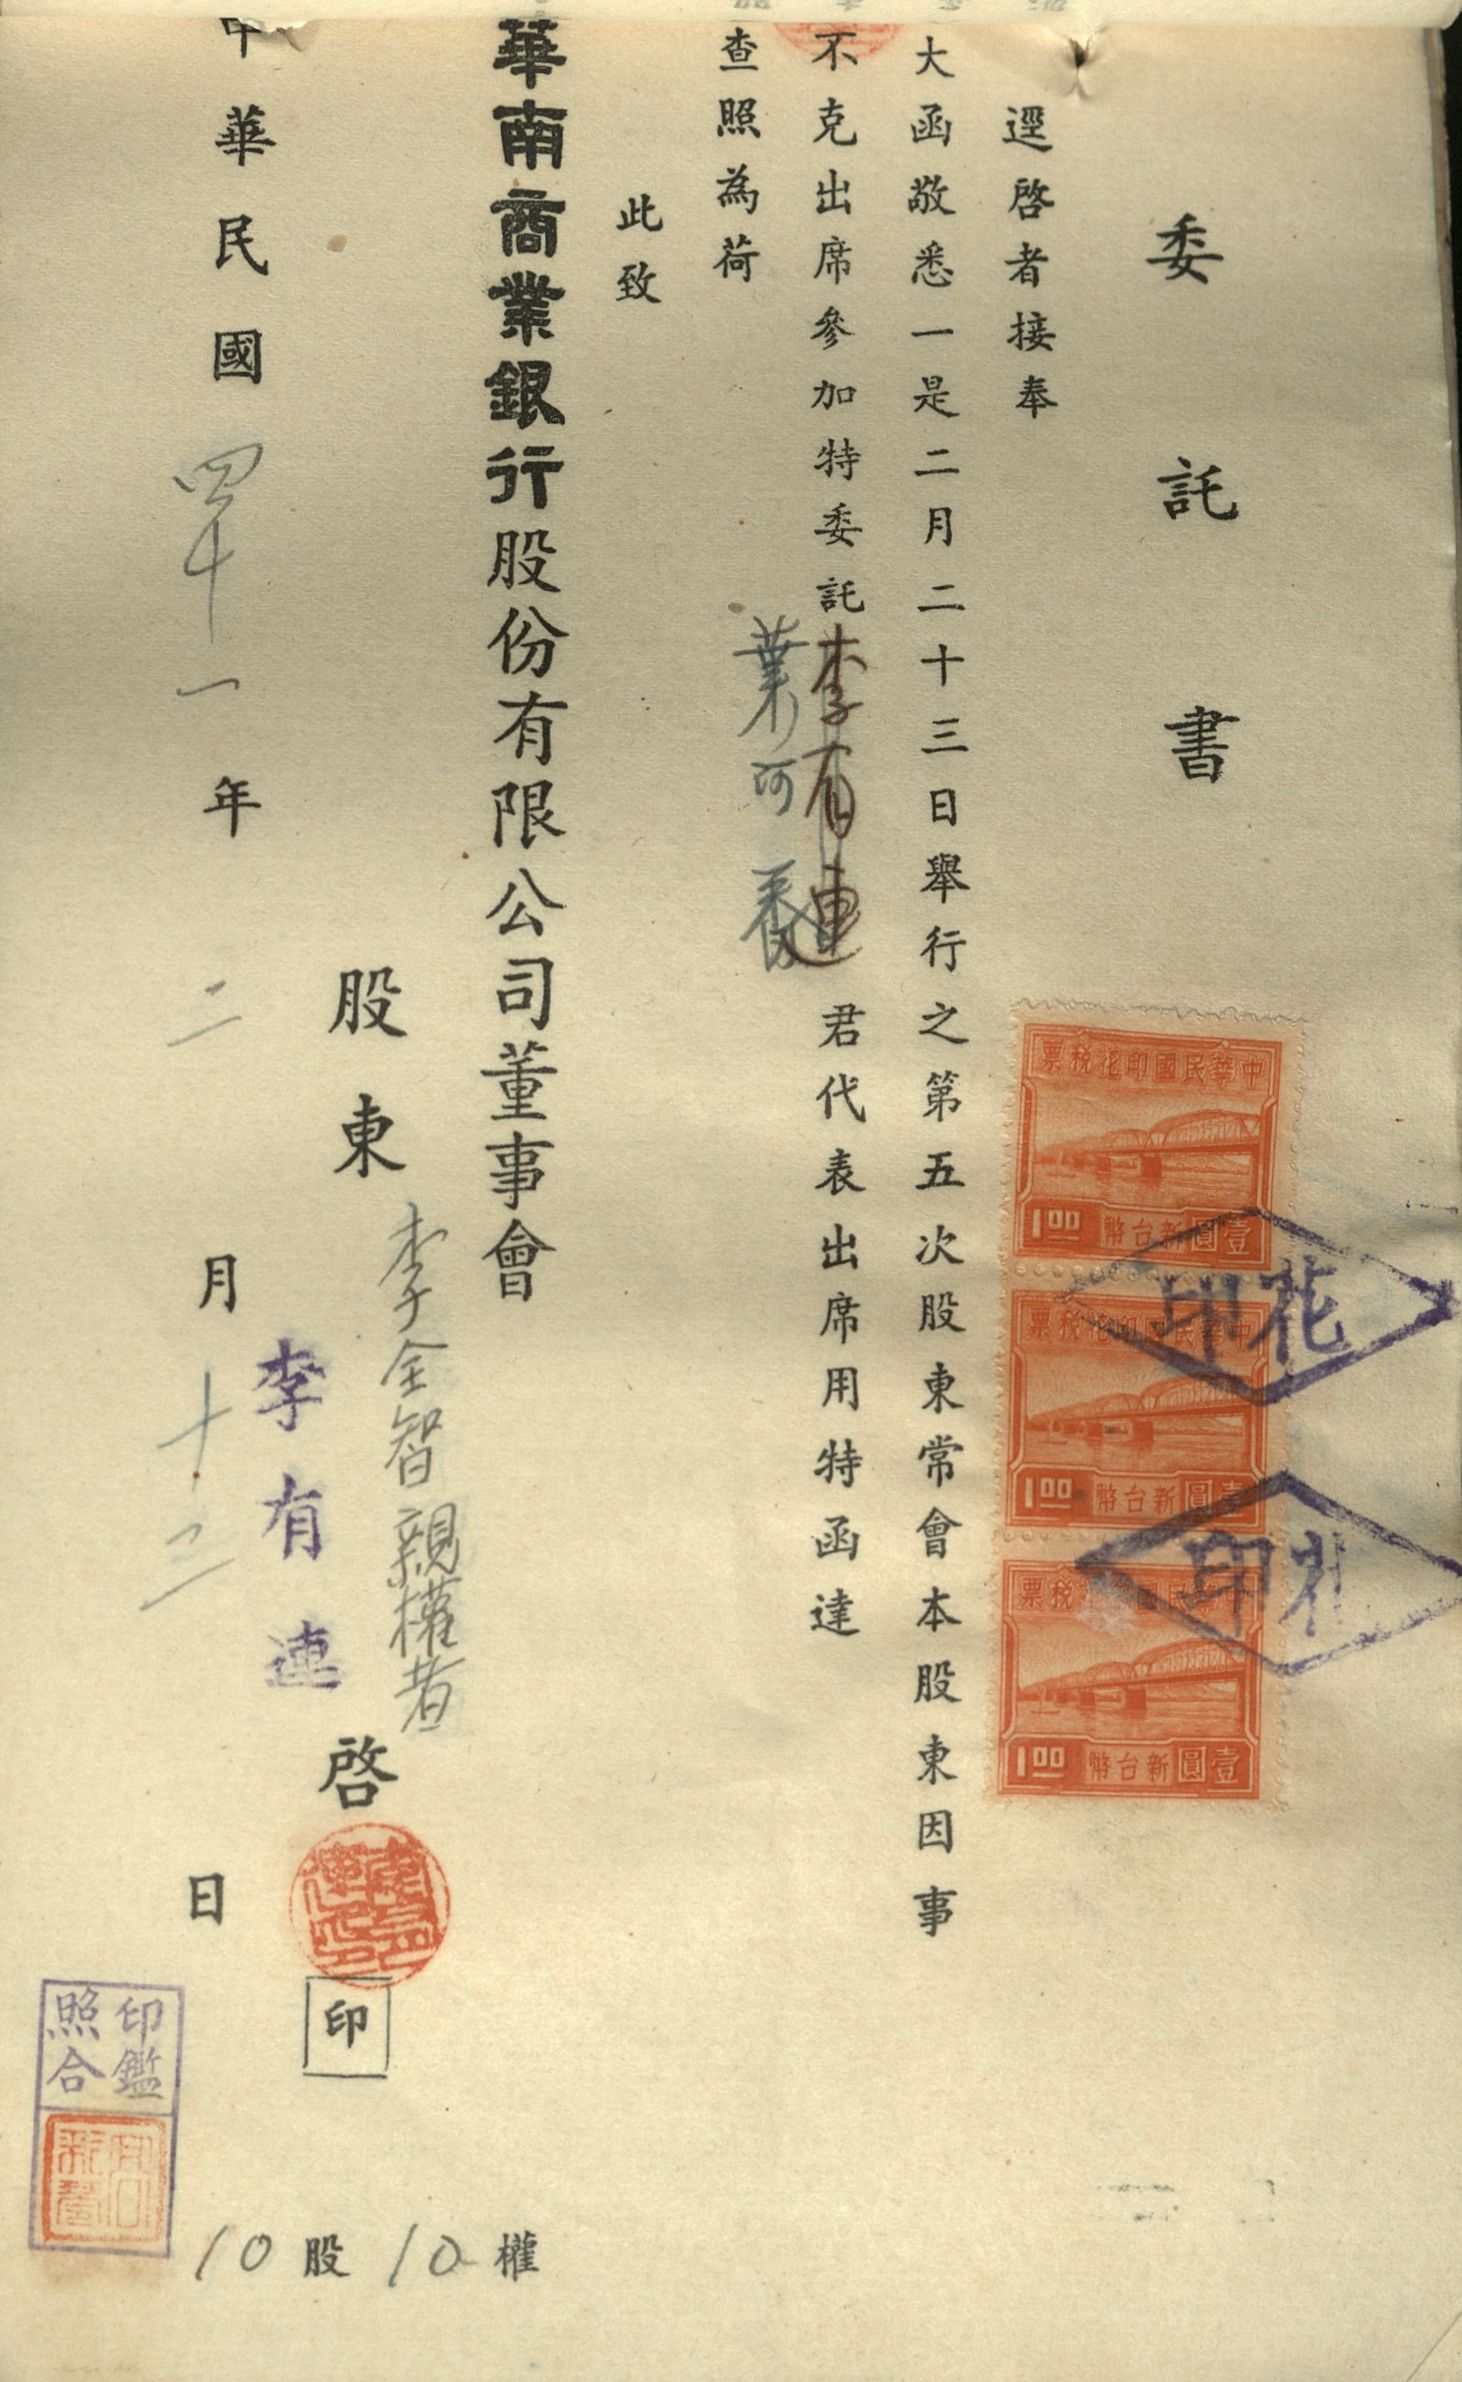 委託書
逕啓者接奉
大函敬悉一是二月二十三日舉行之第五次股東常會本股東因事
不克出席參加特委託李有連君代表出席用特函達
葉
查照為荷
此致
華南商業銀行股份有限公司董事會
股東李全智親權者啓
李有連
印
中華民國四十一年二月十二日
10股10權
印鑑
照合
中華民國印花稅票
壹圓新台幣 1.00
印花
中華民國印花稅票
壹圓新台幣 1.00
印花
中華民國印花稅票
壹圓新台幣 1.00